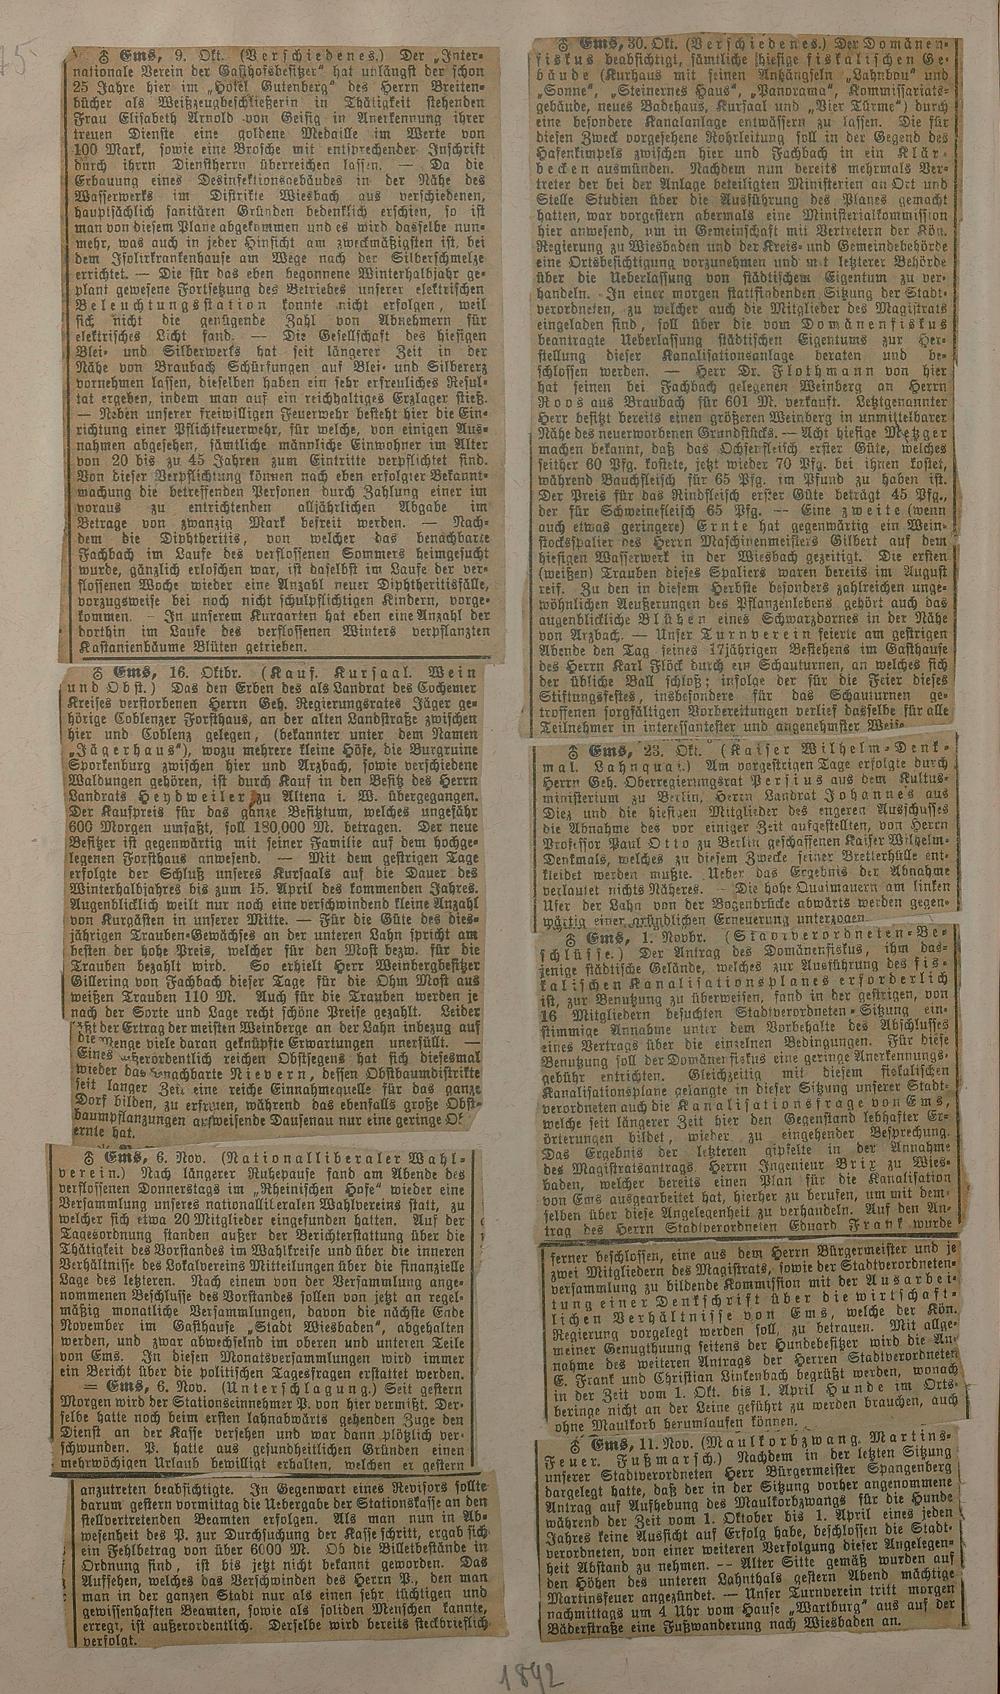 75
♂ Ems, 9. Okt. (Verschiedenes.) Der „Inter-
nationale Verein der Gasthofsbesitzer“ hat unlängst der schon
25 Jahre hier im „Hotel Gutenberg“ des Herrn Breiten-
bücher als Weißzeugbeschließerin in Thätigkeit stehenden
Frau Elisabeth Arnold von Geisig in Anerkennung ihrer
treuen Dienste eine goldene Medaille im Werte von
100 Mark, sowie eine Brosche mit entsprechender Inschrift
durch ihren Dienstherrn überreichen lassen. — Da die
Erbauung eines Desinfektionsgebäudes in der Nähe des
Wasserwerks im Distrikte Wiesbach aus verschiedenen,
hauptsächlich sanitären Gründen bedenklich erschien, so ist
man von diesem Plane abgekommen und es wird dasselbe nun-
mehr, was auch in jeder Hinsicht am zweckmäßigsten ist, bei
dem Isolirkrankenhause am Wege nach der Silberschmelze
errichtet. — Die für das eben begonnene Winterhalbjahr ge-
plant gewesene Fortsetzung des Betriebes unserer elektrischen
Beleuchtungsstation konnte nicht erfolgen, weil
sich nicht die genügende Zahl von Abnehmern für
elektrisches Licht fand. — Die Gesellschaft des hiesigen
Blei- und Silberwerks hat seit längerer Zeit in der
Nähe von Braubach Schürfungen auf Blei- und Silbererz
vornehmen lassen, dieselben haben ein sehr erfreuliches Resul-
tat ergeben, indem man auf ein reichhaltiges Erzlager stieß.
— Neben unserer freiwilligen Feuerwehr besteht hier die Ein-
richtung einer Pflichtfeuerwehr, für welche, von einigen Aus-
nahmen abgesehen, sämtliche männliche Einwohner im Alter
von 20 bis zu 45 Jahren zum Eintritte verpflichtet sind.
Von dieser Verpflichtung können nach eben erfolgter Bekannt-
machung die betreffenden Personen durch Zahlung einer im
voraus zu entrichtenden alljährlichen Abgabe im
Betrage von zwanzig Mark befreit werden. — Nach-
dem die Diphtheritis, von welcher das benachbarte
Fachbach im Laufe des verflossenen Sommers heimgesucht
wurde, gänzlich erloschen war, ist daselbst im Laufe der ver-
flossenen Woche wieder eine Anzahl neuer Diphtheritisfälle,
vorzugsweise bei noch nicht schulpflichtigen Kindern, vorge-
kommen. — In unserem Kurgarten hat eben eine Anzahl der
dorthin im Laufe des verflossenen Winters verpflanzten
Kastanienbäume Blüten getrieben.
♂ Ems, 16. Oktbr. (Kauf. Kursaal. Wein
und Obst.) Das den Erben des als Landrat des Cochemer
Kreises verstorbenen Herrn Geh. Regierungsrates Jäger ge-
hörige Coblenzer Forsthaus, an der alten Landstraße zwischen
hier und Coblenz gelegen, (bekannter unter dem Namen
„Jägerhaus“), wozu mehrere kleine Höfe, die Burgruine
Sporkenburg zwischen hier und Arzbach, sowie verschiedene
Waldungen gehören, ist durch Kauf in den Besitz des Herrn
Landrats Heydweiler zu Altena i. W. übergegangen.
Der Kaufpreis für das ganze Besitztum, welches ungefähr
600 Morgen umfaßt, soll 180,000 M. betragen. Der neue
Besitzer ist gegenwärtig mit seiner Familie auf dem hochge-
legenen Forsthaus anwesend. — Mit dem gestrigen Tage
erfolgte der Schluß unseres Kursaals auf die Dauer des
Winterhalbjahres bis zum 15. April des kommenden Jahres.
Augenblicklich weilt nur noch eine verschwindend kleine Anzahl
von Kurgästen in unserer Mitte. — Für die Güte des dies-
jährigen Trauben-Gewächses an der unteren Lahn spricht am
besten der hohe Preis, welcher für den Most bezw. für die
Trauben bezahlt wird. So erhielt Herr Weinbergbesitzer
Gillering von Fachbach dieser Tage für die Ohm Most aus
weißen Trauben 110 M. Auch für die Trauben werden je
nach der Sorte und Lage recht schöne Preise gezahlt. Leider
läßt der Ertrag der meisten Weinberge an der Lahn inbezug auf
die Menge viele daran geknüpfte Erwartungen unerfüllt. —
Eines außerordentlich reichen Obstsegens hat sich diesesmal
wieder das benachbarte Nievern, dessen Obstbaumdistrikte
seit langer Zeit eine reiche Einnahmequelle für das ganze
Dorf bilden, zu erfreuen, während das ebenfalls große Obst-
baumpflanzungen aufweisende Dausenau nur eine geringe Ob
ernte hat.
♂ Ems, 6. Nov. (Nationalliberaler Wahl-
verein.) Nach längerer Ruhepause fand am Abende des
verflossenen Donnerstags im „Rheinischen Hofe“ wieder eine
Versammlung unseres nationalliberalen Wahlvereins statt, zu
welcher sich etwa 20 Mitglieder eingefunden hatten. Auf der
Tagesordnung standen außer der Berichterstattung über die
Thätigkeit des Vorstandes im Wahlkreise und über die inneren
Verhältnisse des Lokalvereins Mitteilungen über die finanzielle
Lage des letzteren. Nach einem von der Versammlung ange-
nommenen Beschlusse des Vorstandes sollen von jetzt an regel-
mäßig monatliche Versammlungen, davon die nächste Ende
November im Gasthause „Stadt Wiesbaden“, abgehalten
werden, und zwar abwechselnd im oberen und unteren Teile
von Ems. In diesen Monatsversammlungen wird immer
ein Bericht über die politischen Tagesfragen erstattet werden.
= Ems, 6. Nov. (Unterschlagung.) Seit gestern
Morgen wird der Stationseinnehmer P. von hier vermißt. Der-
selbe hatte noch beim ersten lahnabwärts gehenden Zuge den
Dienst an der Kasse versehen und war dann plötzlich ver-
schwunden. P. hatte aus gesundheitlichen Gründen einen
mehrwöchigen Urlaub bewilligt erhalten, welchen er gestern
anzutreten beabsichtigte. In Gegenwart eines Revisors sollte
darum gestern vormittag die Uebergabe der Stationskasse an den
stellvertretenden Beamten erfolgen. Als man nun in Ab-
wesenheit des P. zur Durchsuchung der Kasse schritt, ergab sich
ein Fehlbetrag von über 6000 M. Ob die Billetbestände in
Ordnung sind, ist bis jetzt nicht bekannt geworden. Das
Aufsehen, welches das Verschwinden des Herrn P., den man
man in der ganzen Stadt nur als einen sehr tüchtigen und
gewissenhaften Beamten, sowie als soliden Menschen kannte,
erregt, ist außerordentlich. Derselbe wird bereits steckbrieflich
verfolgt.
♂ Ems, 30. Okt. (Verschiedenes.) Der Domänen-
fiskus beabsichtigt, sämtliche hiesige fiskalischen Ge-
bäude (Kurhaus mit seinen Anhängseln „Lahnbau“ und
„Sonne“, „Steinernes Haus“, „Panorama“, Kommissariats-
gebäude, neues Badehaus, Kursaal und „Vier Türme“) durch
eine besondere Kanalanlage entwässern zu lassen. Die für
diesen Zweck vorgesehene Rohrleitung soll in der Gegend des
Hafenkimpels zwischen hier und Fachbach in ein Klär-
becken ausmünden. Nachdem nun bereits mehrmals Ver-
treter der bei der Anlage beteiligten Ministerien an Ort und
Stelle Studien über die Ausführung des Planes gemacht
hatten, war vorgestern abermals eine Ministerialkommission
hier anwesend, um in Gemeinschaft mit Vertretern der Kön.
Regierung zu Wiesbaden und der Kreis- und Gemeindebehörde
eine Ortsbesichtigung vorzunehmen und mit letzterer Behörde
über die Ueberlassung von städtischem Eigentum zu ver-
handeln. In einer morgen stattfindenden Sitzung der Stadt-
verordneten, zu welcher auch die Mitglieder des Magistrats
eingeladen sind, soll über die vom Domänenfiskus
beantragte Ueberlassung städtischen Eigentums zur Her-
stellung dieser Kanalisationsanlage beraten und be-
schlossen werden. — Herr Dr. Flothmann von hier
hat seinen bei Fachbach gelegenen Weinberg an Herrn
Roos aus Braubach für 601 M. verkauft. Letztgenannter
Herr besitzt bereits einen größeren Weinberg in unmittelbarer
Nähe des neuerworbenen Grundstücks. — Acht hiesige Metzger
machen bekannt, daß das Ochsenfleisch erster Güte, welches
seither 60 Pfg. kostete, jetzt wieder 70 Pfg. bei ihnen kostet,
während Bauchfleisch für 65 Pfg. im Pfund zu haben ist.
Der Preis für das Rindfleisch erster Güte beträgt 45 Pfg.,
der für Schweinefleisch 65 Pfg. — Eine zweite (wenn
auch etwas geringere) Ernte hat gegenwärtig ein Wein-
stockspalier des Herrn Maschinenmeisters Gilbert auf dem
hiesigen Wasserwerk in der Wiesbach gezeitigt. Die ersten
(weißen) Trauben dieses Spaliers waren bereits im August
reif. Zu den in diesem Herbste besonders zahlreichen unge-
wöhnlichen Aeußerungen des Pflanzenlebens gehört auch das
augenblickliche Blühen eines Schwarzdornes in der Nähe
von Arzbach. — Unser Turnverein feierte am gestrigen
Abende den Tag seines 17jährigen Bestehens im Gasthause
des Herrn Karl Flöck durch ein Schauturnen, an welches sich
der übliche Ball schloß; infolge der für die Feier dieses
Stiftungsfestes, insbesondere für das Schauturnen ge-
troffenen sorgfältigen Vorbereitungen verlief dasselbe für alle
Teilnehmer in interessantester und angenehmster Weise
♂ Ems, 23. Okt. (Kaiser Wilhelm-Denk-
mal. Lahnquai.) Am vorgestrigen Tage erfolgte durch
Herrn Geh. Oberregierungsrat Persius aus dem Kultus-
ministerium zu Berlin, Herrn Landrat Johannes aus
Diez und die hiesigen Mitglieder des engeren Ausschusses
die Abnahme des vor einiger Zeit aufgestellten, von Herrn
Professor Paul Otto zu Berlin geschaffenen Kaiser Wilhelm-
Denkmals, welches zu diesem Zwecke seiner Bretterhülle ent-
kleidet werden mußte. Ueber das Ergebnis der Abnahme
verlautet nichts Näheres. — Die hohe Quaimauern am linken
Ufer der Lahn von der Bogenbrücke abwärts werden gegen-
wärtig einer gründlichen Erneuerung unterzogen.
♂ Ems, 1. Novbr. (Stadtverordneten-Be-
schlüsse.) Der Antrag des Domänenfiskus, ihm das-
jenige städtische Gelände, welches zur Ausführung des fis-
kalischen Kanalisationsplanes erforderlich
ist, zur Benutzung zu überweisen, fand in der gestrigen, von
16 Mitgliedern besuchten Stadtverordneten-Sitzung ein-
stimmige Annahme unter dem Vorbehalte des Abschlusses
eines Vertrags über die einzelnen Bedingungen. Für diese
Benutzung soll der Domänenfiskus eine geringe Anerkennungs-
gebühr entrichten. Gleichzeitig mit diesem fiskalischen
Kanalisationsplane gelangte in dieser Sitzung unserer Stadt-
verordneten auch die Kanalisationsfrage von Ems,
welche seit längerer Zeit hier den Gegenstand lebhafter Er-
örterungen bildet, wieder zu eingehender Besprechung.
Das Ergebnis der letzteren gipfelte in der Annahme
des Magistratsantrags, Herrn Ingenieur Brix zu Wies-
baden, welcher bereits einen Plan für die Kanalisation
von Ems ausgearbeitet hat, hierher zu berufen, um mit dem-
selben über diese Angelegenheit zu verhandeln. Auf den An-
trag des Herrn Stadtverordneten Eduard Frank wurde
ferner beschlossen, eine aus dem Herrn Bürgermeister und je
zwei Mitgliedern des Magistrats, sowie der Stadtverordneten-
versammlung zu bildende Kommission mit der Ausarbei-
tung einer Denkschrift über die wirtschaft-
lichen Verhältnisse von Ems, welche der Kön.
Regierung vorgelegt werden soll, zu betrauen. Mit allge-
meiner Genugthuung seitens der Hundebesitzer wird die An-
nahme des weiteren Antrags der Herren Stadtverordneten
E. Frank und Christian Linkenbach begrüßt werden, wonach
in der Zeit vom 1. Okt. bis 1. April Hunde im Orts-
beringe nicht an der Leine geführt zu werden brauchen, auch
ohne Maulkorb herumlaufen können.
♂ Ems, 11. Nov. (Maulkorbzwang. Martins-
Feuer. Fußmarsch.) Nachdem in der letzten Sitzung
unserer Stadtverordneten Herr Bürgermeister Spangenberg
dargelegt hatte, daß der in der Sitzung vorher angenommene
Antrag auf Aufhebung des Maulkorbzwangs für die Hunde
während der Zeit vom 1. Oktober bis 1. April eines jeden
Jahres keine Aussicht auf Erfolg habe, beschlossen die Stadt-
verordneten, von einer weiteren Verfolgung dieser Angelegen-
heit Abstand zu nehmen. — Alter Sitte gemäß wurden auf
den Höhen des unteren Lahnthals gestern Abend mächtige
Martinsfeuer angezündet. — Unser Turnverein tritt morgen
nachmittags um 4 Uhr vom Hause „Wartburg“ aus auf der
Bäderstraße eine Fußwanderung nach Wiesbaden an.
1892